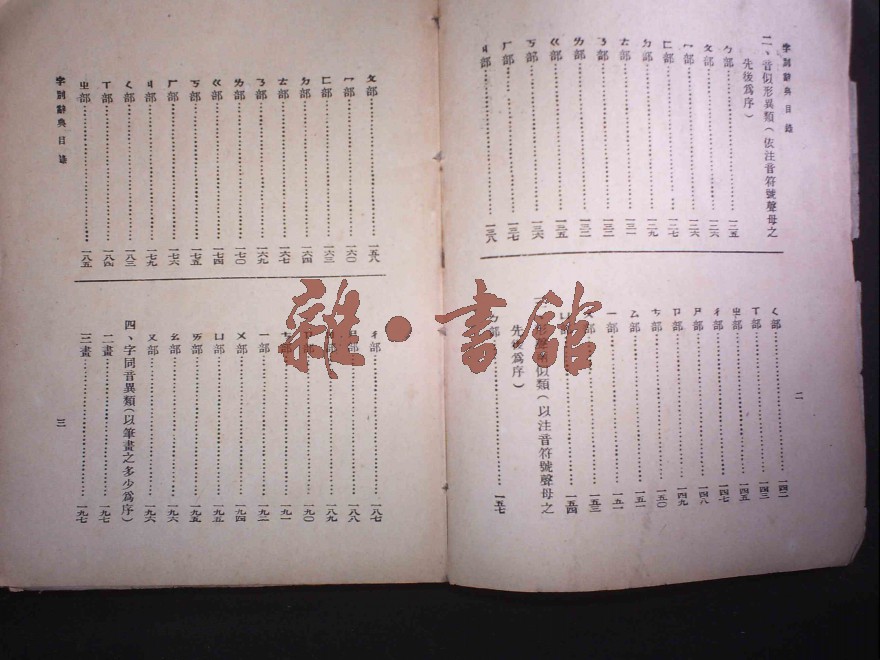 字別辭典目錄
二、音似形異類(依注音符號聲母之
先後為序)
ㄅ部………一二五
ㄆ部………一二六
ㄇ部………一二六
ㄈ部………一二七
ㄉ部………一二九
ㄊ部………一三一
ㄋ部………一三二
ㄌ部………一三二
ㄍ部………一三五
ㄎ部………一三六
ㄏ部………一三七
ㄐ部………一三八
ㄑ部………一四二
ㄒ部………一四三
ㄓ部………一四五
ㄔ部………一四七
ㄕ部………一四八
ㄖ部………一四九
ㄘ部………一五〇
ㄙ部………一五一
ㄧ部………一五一
ㄨ部………一五三
ㄩ部………一五四
似類(以注音符號聲母之
先後為序)
ㄅ部………一五七
二
ㄆ部………一五八
ㄇ部………一六〇
ㄈ部………一六三
ㄉ部………一六四
ㄊ部………一六七
ㄋ部………一六九
ㄌ部………一七〇
ㄍ部………一七四
ㄎ部………一七五
ㄏ部………一七六
ㄐ部………一七九
ㄑ部………一八三
ㄒ部………一八四
ㄓ部………一八五
ㄔ部………一八七
部………一八八
部………一八九
部………一九〇
部………一九一
ㄧ部………一九二
ㄨ部………一九四
ㄩ部………一九五
ㄞ部………一九五
ㄠ部………一九六
ㄡ部………一九六
四、字同音異類(以筆畫之多少為序)
二畫………一九七
三畫………一九七
字別辭典目錄
三
雜·書館